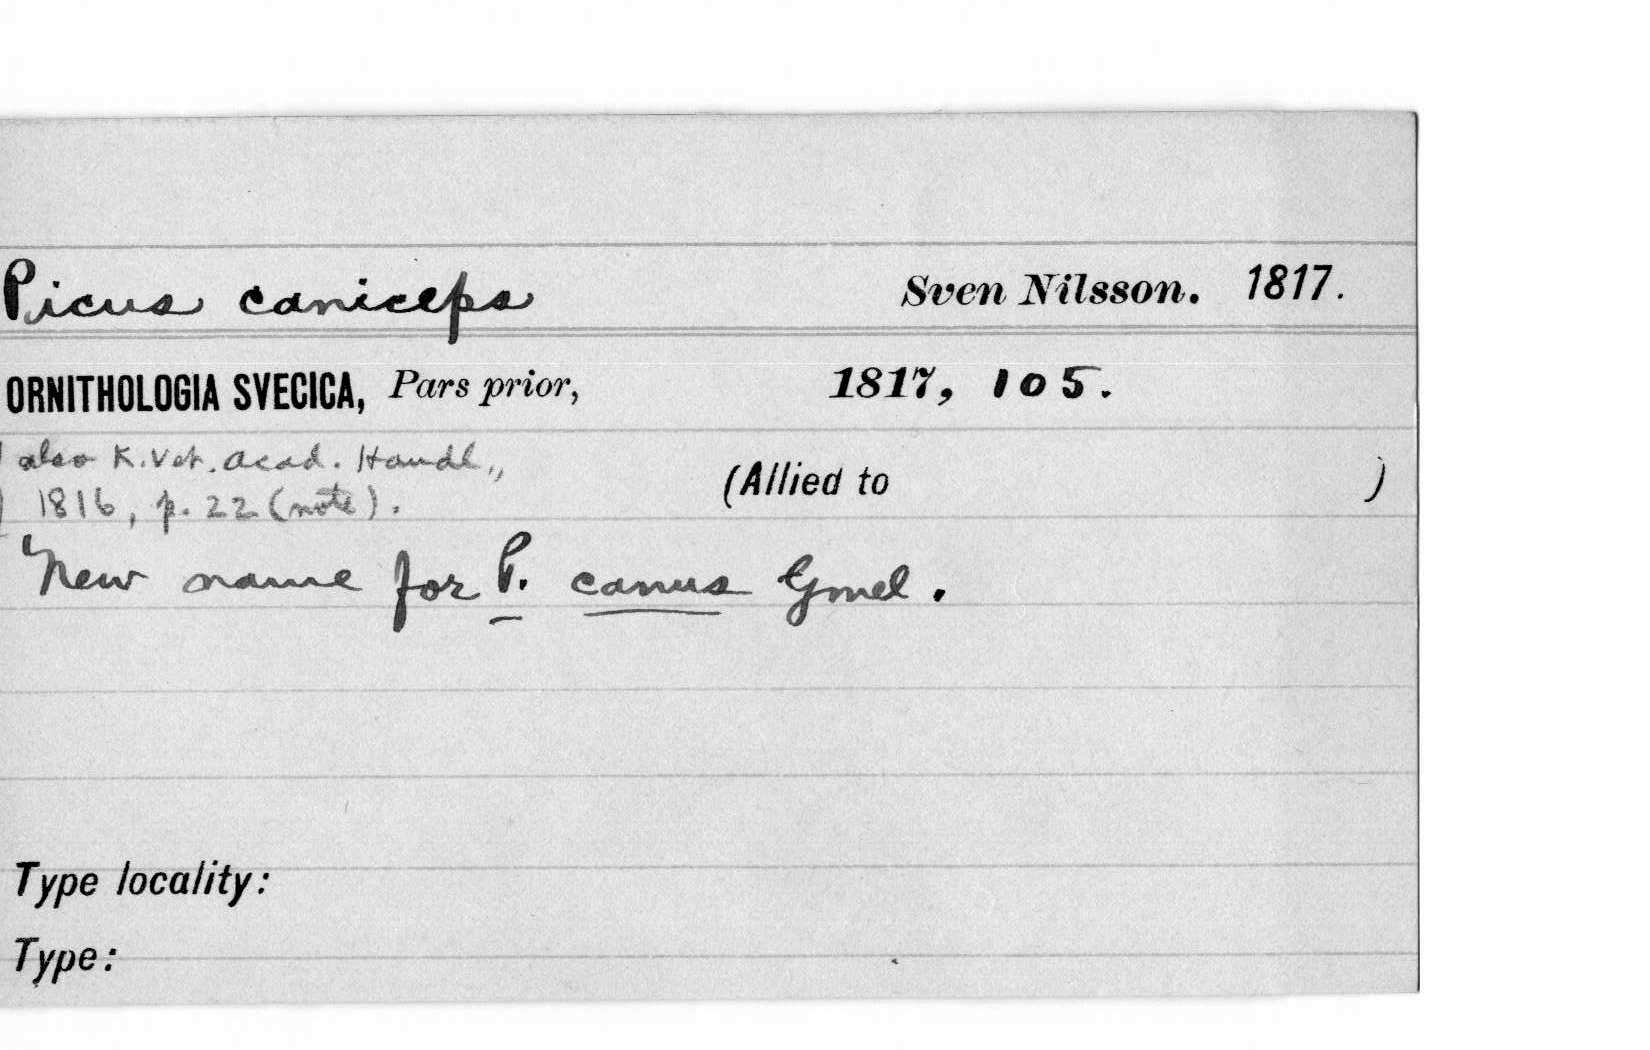 Picus caniceps Sven Nilsson. 1817.
ORNITHOLOGIA SVECICA, Pars prior, 1817, 105.
also K. Vet. Acad. Handl.,
1816, p. 22 (note).
(Allied to )
New name for P. canus Gmel.
Type locality:
Type: